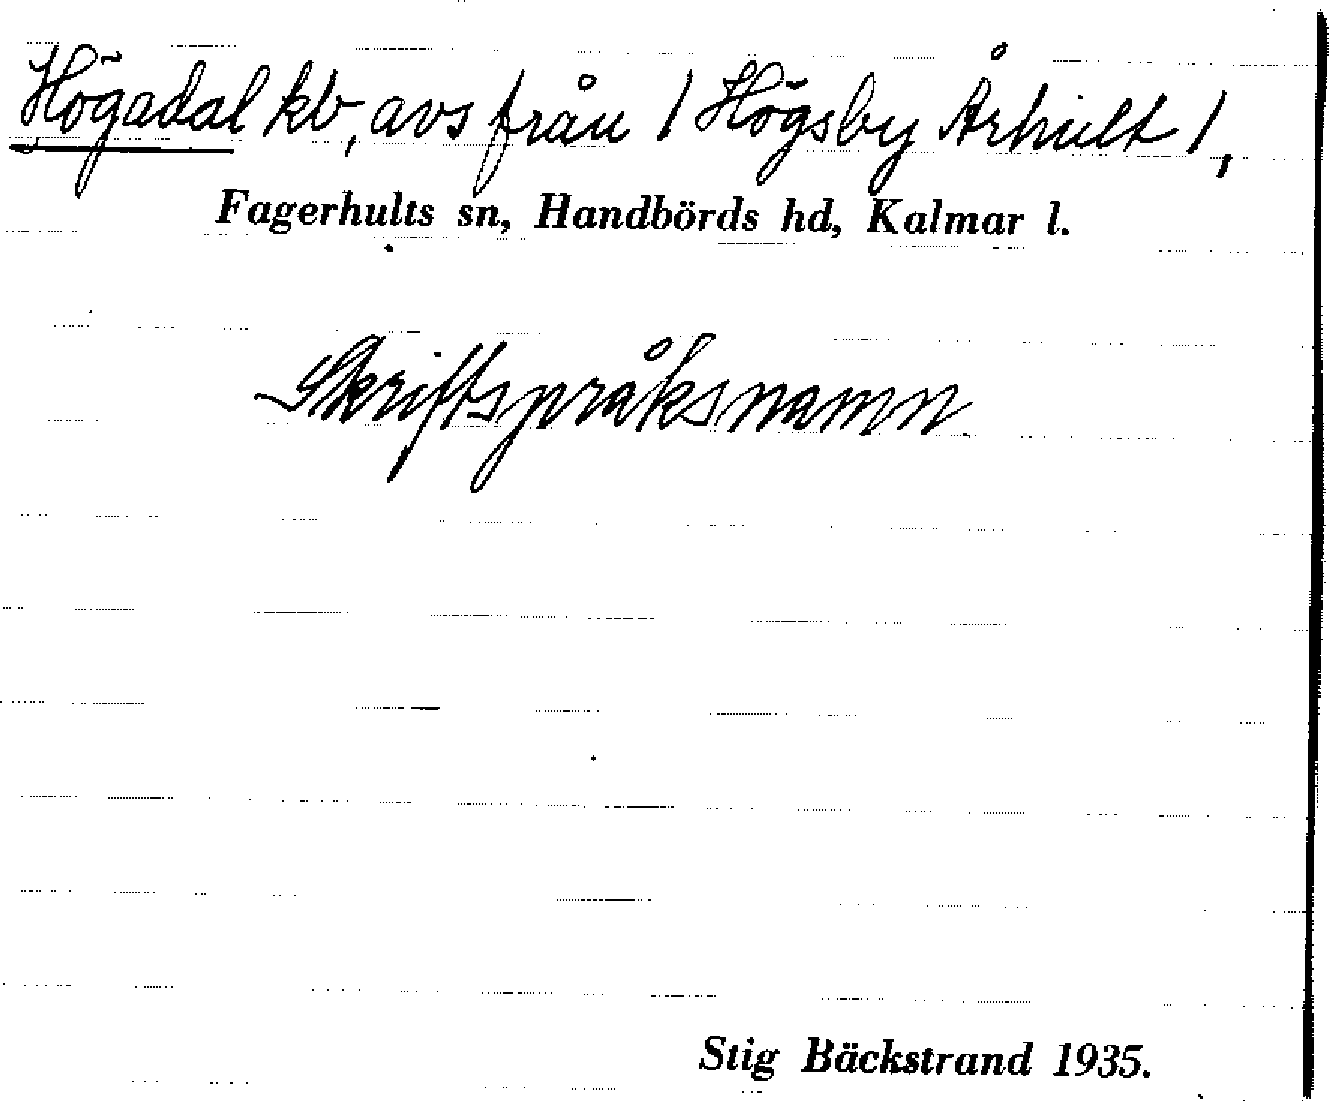 Högadal kb, avs från / Högsby Århult /,
Fagerhults sn, Handbörds hd, Kalmar l.
Skriftspråksnamn.
Stig Bäckstrand 1935.